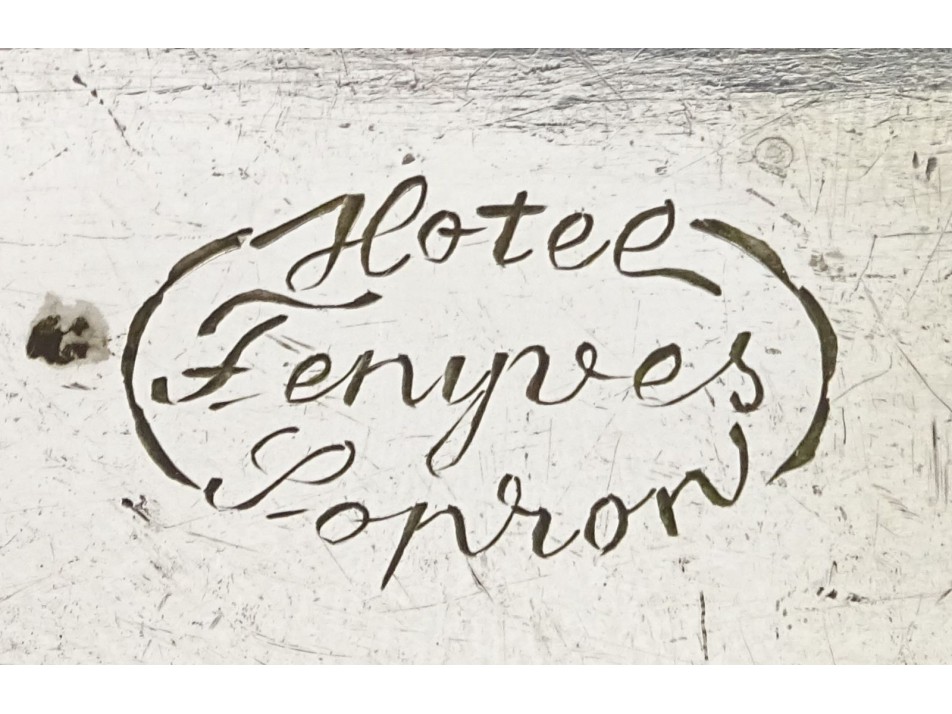 Hotel
Fenyves
Sopron